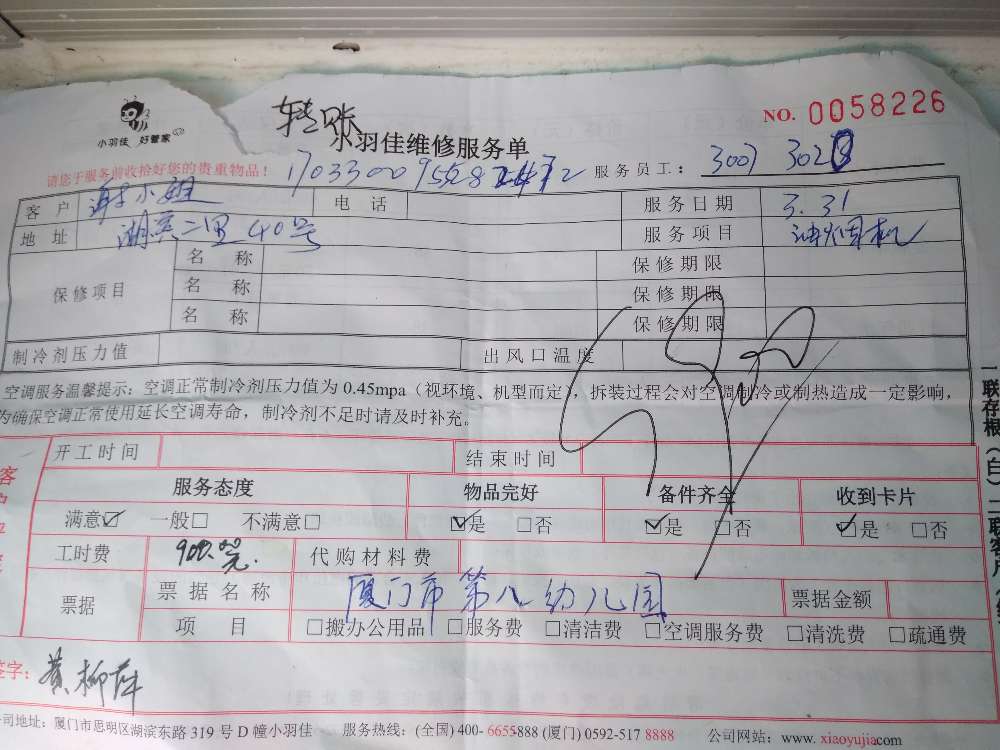 小羽佳 好管家
转账
NO. 0058226
小羽佳维修服务单
请您于服务前收拾好您的贵重物品！
服务员工： 3007 302
客户 谢小姐 电话 服务日期 3.31
地址 湖滨二里40号 服务项目 油烟机
保修项目 名称 保修期限
名称 保修期限
名称 保修期限
制冷剂压力值 出风口温度
空调服务温馨提示：空调正常制冷剂压力值为0.45mpa（视环境、机型而定），拆装过程会对空调制冷或制热造成一定影响，
为确保空调正常使用延长空调寿命，制冷剂不足时请及时补充。
开工时间 结束时间
服务态度 物品完好 备件齐全 收到卡片
满意☑ 一般□ 不满意□ ☑是 □否 ☑是 □否 ☑是 □否
工时费 900.00元. 代购材料费
票据 票据名称 厦门市第八幼儿园 票据金额
项目 □搬办公用品 □服务费 □清洁费 □空调服务费 □清洗费 □疏通费
签字：黄柳萍
公司地址：厦门市思明区湖滨东路319号D幢小羽佳 服务热线：(全国) 400-6655888 (厦门) 0592-517 8888 公司网站：www.xiaoyujia.com
一联存根（白）二联客户